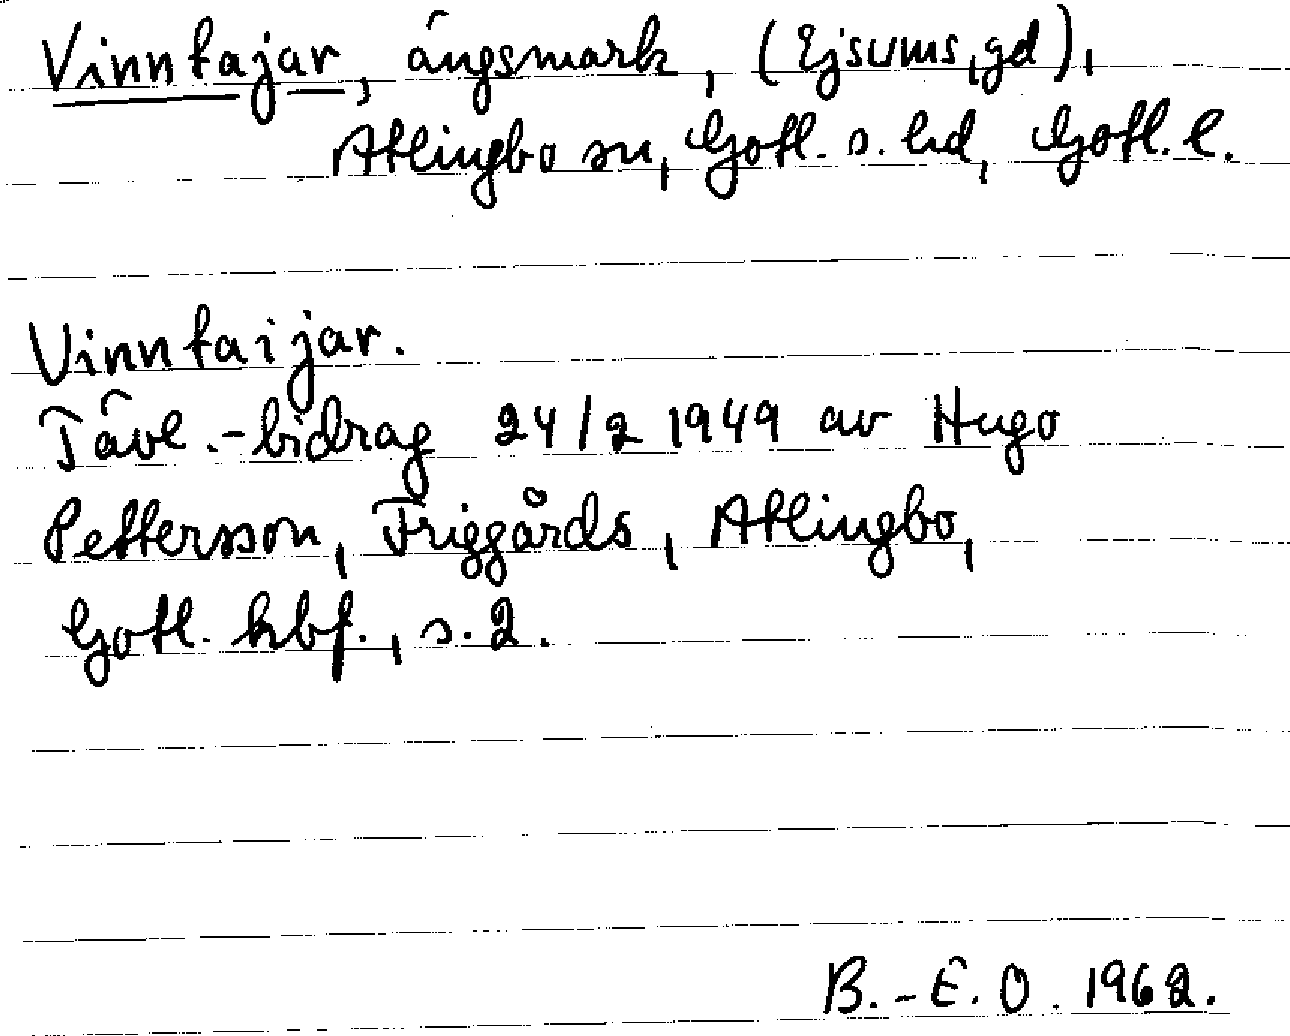 Vinntajar, ängsmark, (Ejsums, gd),
Atlingbo sn, Gotl. s. hd, Gotl. l.
Vinntaijar.
Tävl.-bidrag 24/2 1949 av Hugo
Pettersson, Friggårds, Atlingbo,
Gotl. hbf., s. 2.
B.-E. O. 1962.